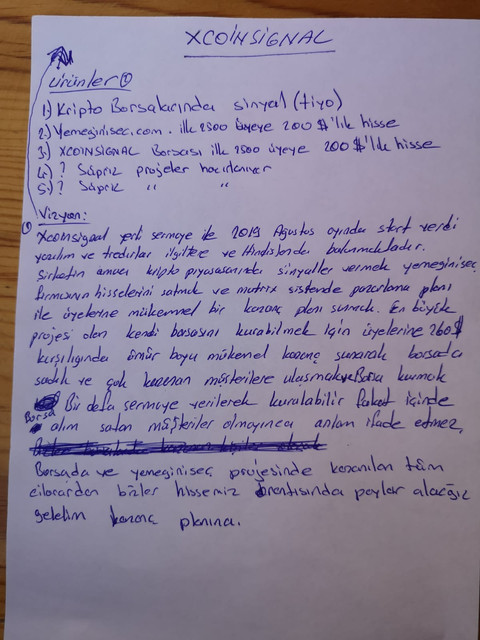 XCOİNSİGNAL
ürünler ②
1) Kripto Borsalarında sinyal (tiyo)
2) Yemeginisec.com. ilk 2500 üyeye 200 $'lık hisse
3) XCOINSIGNAL Borsası ilk 2500 üyeye 200 $'lık hisse
4) ? Süpriz projeler hazırlanıyor
5) ? Süpriz " "
Vizyon:
① Xcoinsignal yerli sermaye ile 2019 Ağustos ayında start verdi
yazılım ve tredırlar ilgiltere ve Hindistanda bulunmaktadır.
Şirketin amacı kripto piyasasında sinyaller vermek yemeginiseç
firmasının hisselerini satmak ve matrix sistemde pazarlama planı
ile üyelerine mükemmel bir kazanç planı sunmak. En büyük
projesi olan kendi borsasını kurabilmek için üyelerine 260$
karşılığında ömür boyu mükemel kazanç sunarak borsada
sadık ve çok kazanan müşterilere ulaşmak. Borsa kurmak
Bir defa sermaye verilerek kurulabilir fakat içinde
Borsa alım satan müşteriler olmayınca anlam ifade etmez.
Borsada ve yemeginiseç projesinde kazanılan tüm
cilolardan bizler hissemiz orantısında paylar alacağız
gelelim kazanç planına.